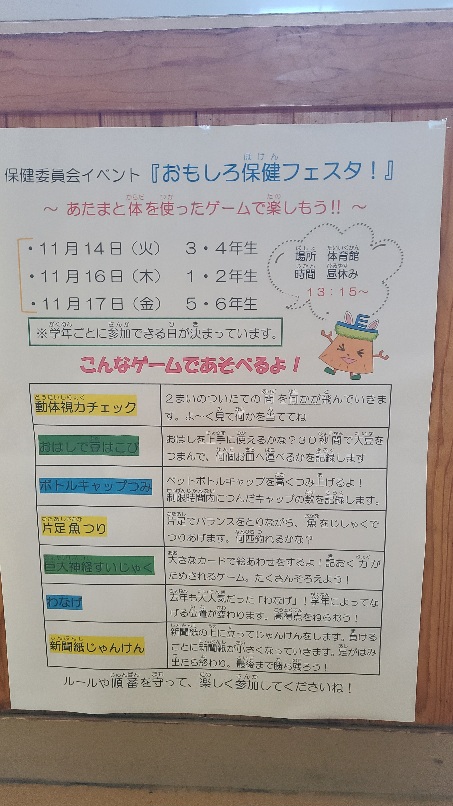 保健委員会イベント『おもしろ保健フェスタ！』
～ あたまと体を使ったゲームで楽しもう!! ～
・11月14日（火） 3・4年生
・11月16日（木） 1・2年生
・11月17日（金） 5・6年生
場所 体育館
時間 昼休み
13：15～
※学年ごとに参加できる日が決まっています。
こんなゲームであそべるよ！
動体視力チェック
2まいのついたての間を何かが飛んでいきます。よ～く見て何かを当ててね
おはしで豆はこび
おはしを上手に使えるかな？30秒間で大豆をつまんで、何個お皿へ運べるかを記録します
ボトルキャップつみ
ペットボトルキャップを高くつみ上げるよ！
制限時間内につんだキャップの数を記録します。
片足魚つり
片足でバランスをとりながら、魚をじしゃくでつりあげます。何匹釣れるかな？
巨大神経すいじゃく
大きなカードで絵あわせをするよ！記おく力がためされるゲーム。たくさんそろえよう！
わなげ
去年も大人気だった「わなげ」！学年によってなげる位置が変わります。高得点をねらおう！
新聞紙じゃんけん
新聞紙の上に立ってじゃんけんをします。負けるごとに新聞紙が小さくなっていきます。足がはみ出たら終わり。最後まで勝ち残ろう！
ルールや順番を守って、楽しく参加してくださいね！